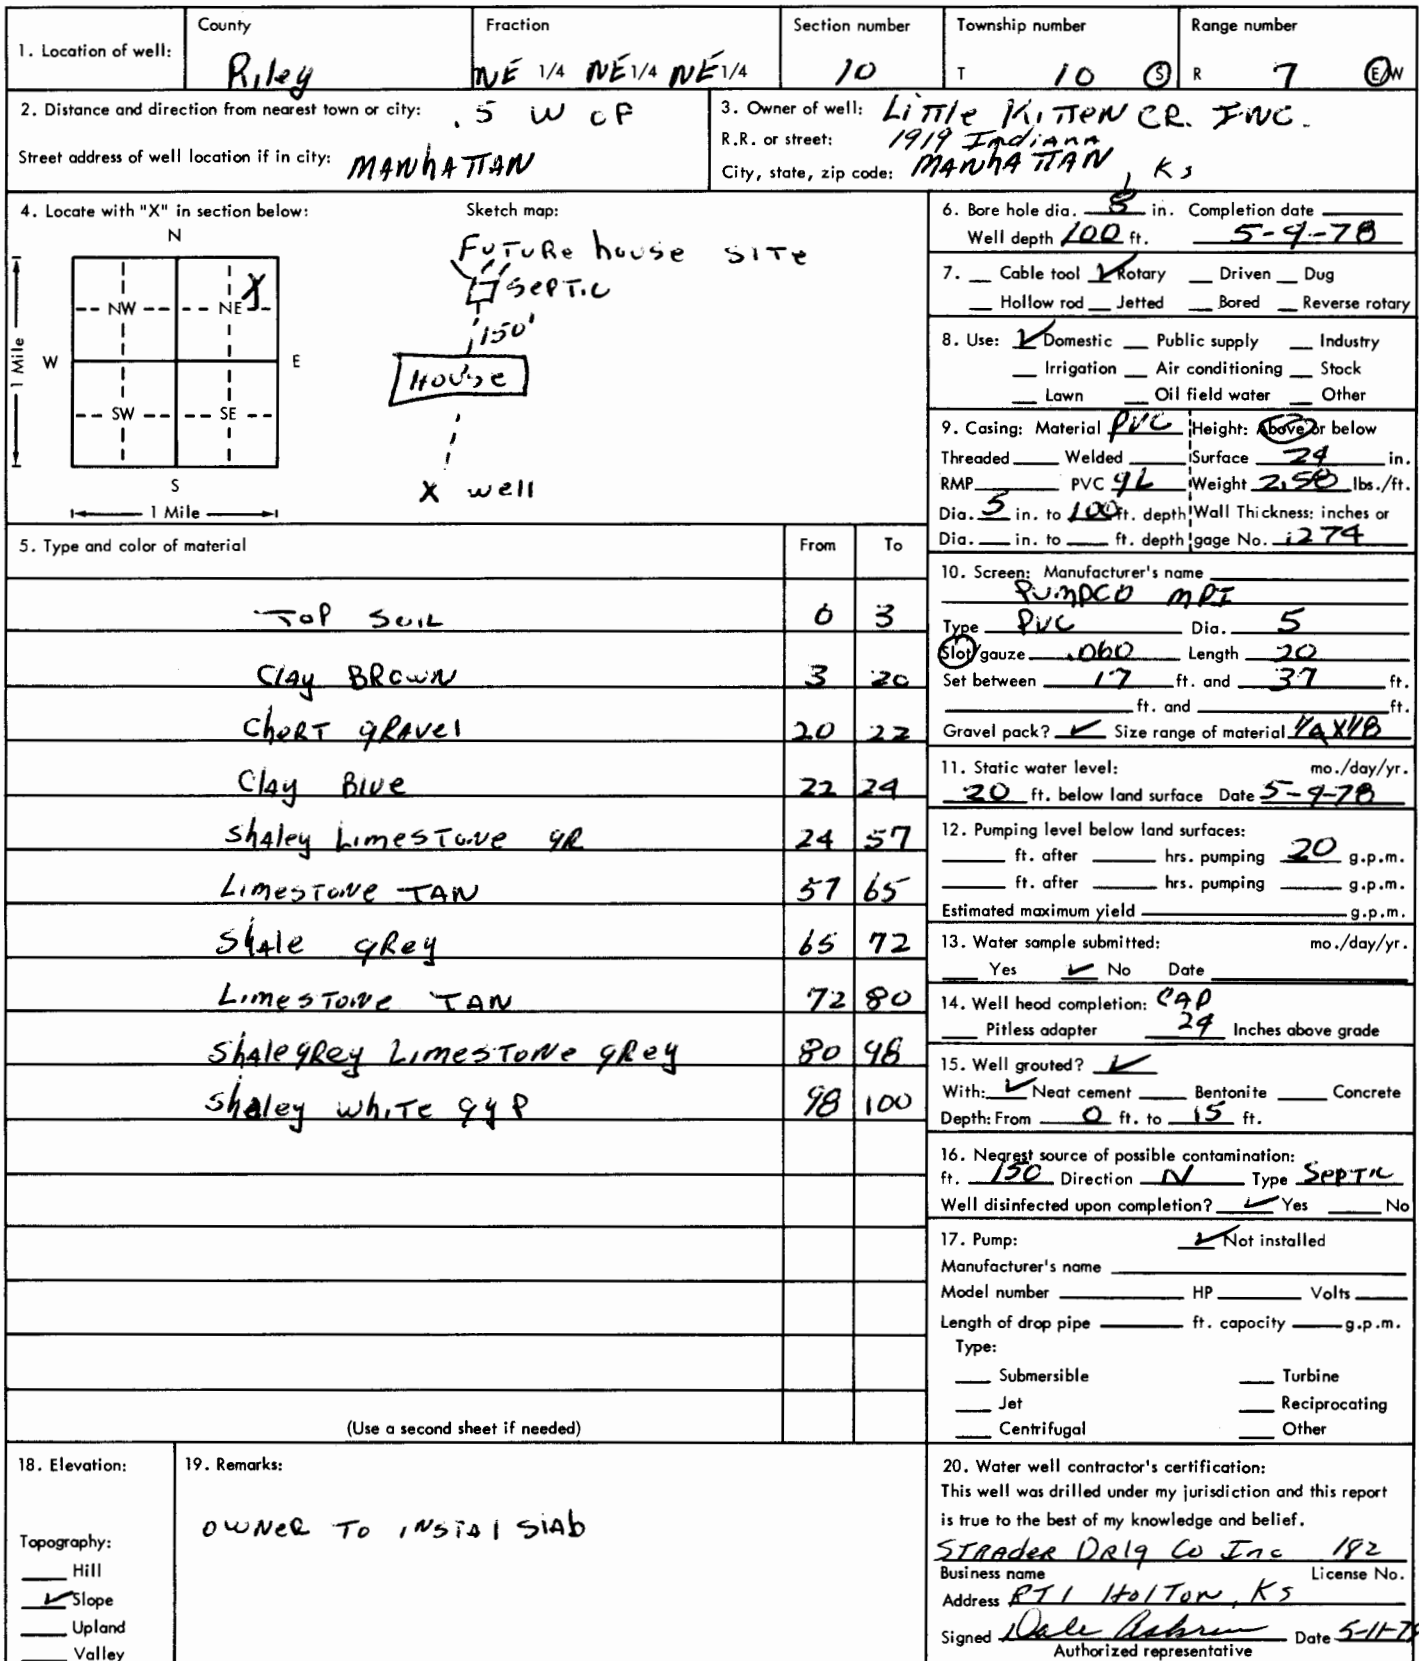 County Fraction Section number Township number Range number
1. Location of well: Riley NE 1/4 NE 1/4 NE 1/4 10 T 10 S R 7 E/W
2. Distance and direction from nearest town or city: .5 W OF
Street address of well location if in city: MANHATTAN
3. Owner of well: Little KITTEN CR. INC.
R.R. or street: 1919 Indiana
City, state, zip code: MANHATTAN, KS
4. Locate with "X" in section below:
N
NW NE X
W E
SW SE
S
1 Mile
1 Mile
Sketch map:
FUTURE house SITE
SEPTIC
150'
House
X well
5. Type and color of material From To
TOP SOIL 0 3
Clay BROWN 3 20
CheRT gRAVel 20 22
Clay Blue 22 24
Shaley LimesTone GR 24 57
LimesTone TAN 57 65
Shale gRey 65 72
LimesTone TAN 72 80
ShalegRey LimesTone gRey 80 98
Shaley whiTe gyp 98 100
(Use a second sheet if needed)
6. Bore hole dia. 8 in. Completion date
Well depth 100 ft. 5-9-78
7. Cable tool ✓ Rotary Driven Dug
Hollow rod Jetted Bored Reverse rotary
8. Use: ✓ Domestic Public supply Industry
Irrigation Air conditioning Stock
Lawn Oil field water Other
9. Casing: Material PVC Height: Above or below
Threaded Welded Surface 24 in.
RMP PVC GL Weight 2.50 lbs./ft.
Dia. 5 in. to 100 ft. depth Wall Thickness: inches or
Dia. in. to ft. depth gage No. .274
10. Screen: Manufacturer's name
PUMPCO MPI
Type PVC Dia. 5
Slot/gauze .060 Length 20
Set between 17 ft. and 37 ft.
ft. and ft.
Gravel pack? ✓ Size range of material 1/4 X 1/8
11. Static water level: mo./day/yr.
20 ft. below land surface Date 5-9-78
12. Pumping level below land surfaces:
ft. after hrs. pumping 20 g.p.m.
ft. after hrs. pumping g.p.m.
Estimated maximum yield g.p.m.
13. Water sample submitted: mo./day/yr.
Yes ✓ No Date
14. Well head completion: CAP
Pitless adapter 24 Inches above grade
15. Well grouted? ✓
With: ✓ Neat cement Bentonite Concrete
Depth: From 0 ft. to 15 ft.
16. Nearest source of possible contamination:
ft. 150 Direction N Type SepTic
Well disinfected upon completion? ✓ Yes No
17. Pump: ✓ Not installed
Manufacturer's name
Model number HP Volts
Length of drop pipe ft. capacity g.p.m.
Type:
Submersible Turbine
Jet Reciprocating
Centrifugal Other
18. Elevation:
Topography:
Hill
✓ Slope
Upland
Valley
19. Remarks:
OWNER TO INSTAl SlAb
20. Water well contractor's certification:
This well was drilled under my jurisdiction and this report
is true to the best of my knowledge and belief.
STRAder DRlg Co Inc 182
Business name License No.
Address RT 1 HolTon, KS
Signed Dale Date 5-11-78
Authorized representative